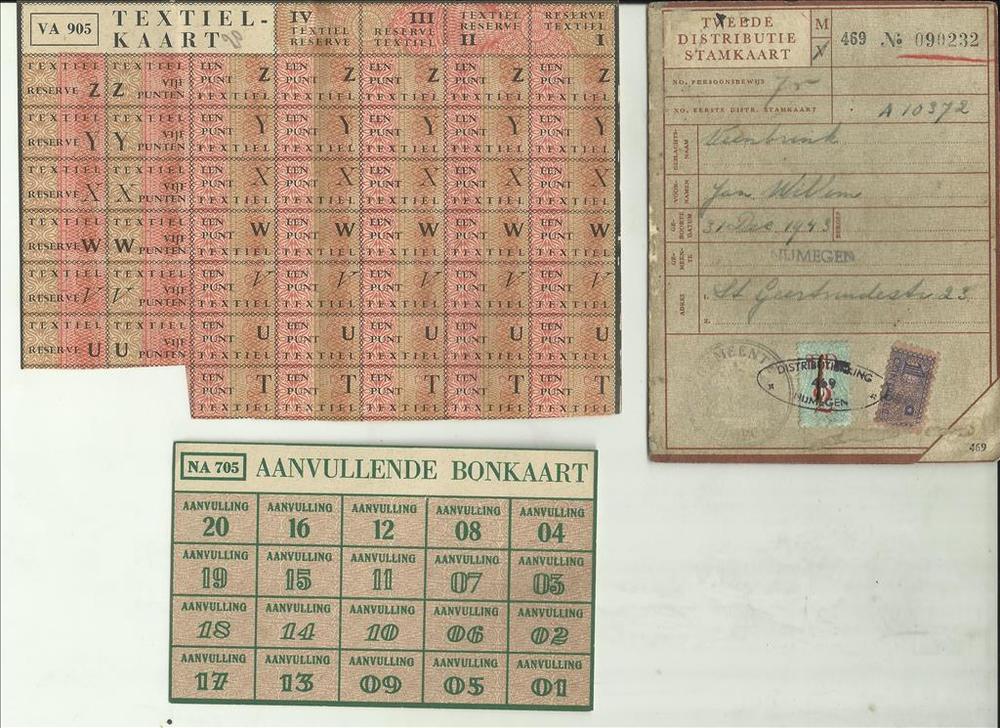 VA 905
TEXTIEL-
KAART
IV
TEXTIEL
RESERVE
III
RESERVE
TEXTIEL
TEXTIEL
RESERVE
II
RESERVE
TEXTIEL
I
TEXTIEL TEXTIEL EEN EEN EEN EEN EEN
RESERVE Z Z VIJF PUNTEN PUNT Z PUNT Z PUNT Z PUNT Z PUNT Z
TEXTIEL TEXTIEL TEXTIEL TEXTIEL TEXTIEL
TEXTIEL TEXTIEL EEN EEN EEN EEN EEN
RESERVE Y Y VIJF PUNTEN PUNT Y PUNT Y PUNT Y PUNT Y PUNT Y
TEXTIEL TEXTIEL TEXTIEL TEXTIEL TEXTIEL
TEXTIEL TEXTIEL EEN EEN EEN EEN EEN
RESERVE X X VIJF PUNTEN PUNT X PUNT X PUNT X PUNT X PUNT X
TEXTIEL TEXTIEL TEXTIEL TEXTIEL TEXTIEL
TEXTIEL TEXTIEL EEN EEN EEN EEN EEN
RESERVE W W VIJF PUNTEN PUNT W PUNT W PUNT W PUNT W PUNT W
TEXTIEL TEXTIEL TEXTIEL TEXTIEL TEXTIEL
TEXTIEL TEXTIEL EEN EEN EEN EEN EEN
RESERVE V V VIJF PUNTEN PUNT V PUNT V PUNT V PUNT V PUNT V
TEXTIEL TEXTIEL TEXTIEL TEXTIEL TEXTIEL
TEXTIEL TEXTIEL EEN EEN EEN EEN EEN
RESERVE U U VIJF PUNTEN PUNT U PUNT U PUNT U PUNT U PUNT U
TEXTIEL TEXTIEL TEXTIEL TEXTIEL TEXTIEL
EEN EEN EEN EEN EEN
PUNT T PUNT T PUNT T PUNT T PUNT T
TEXTIEL TEXTIEL TEXTIEL TEXTIEL TEXTIEL
TWEEDE
DISTRIBUTIE
STAMKAART
M
469 No 090232
NO. PERSOONSBEWIJS
NO. EERSTE DISTR. STAMKAART
A 10372
GESLACHTS-
NAAM
VOOR-
NAMEN
Jan Willem
GE-
BOORTE
DATUM
31 Dec 1943
BEROEP
GE-
MEEN-
TE
NIJMEGEN
ADRES
1. St Geertrudestr 23
2.
GEMEENTE
DISTRIBUTIEKRING
469
NIJMEGEN
469
NA 705
AANVULLENDE BONKAART
AANVULLING AANVULLING AANVULLING AANVULLING AANVULLING
20 16 12 08 04
AANVULLING AANVULLING AANVULLING AANVULLING AANVULLING
19 15 11 07 03
AANVULLING AANVULLING AANVULLING AANVULLING AANVULLING
18 14 10 06 02
AANVULLING AANVULLING AANVULLING AANVULLING AANVULLING
17 13 09 05 01